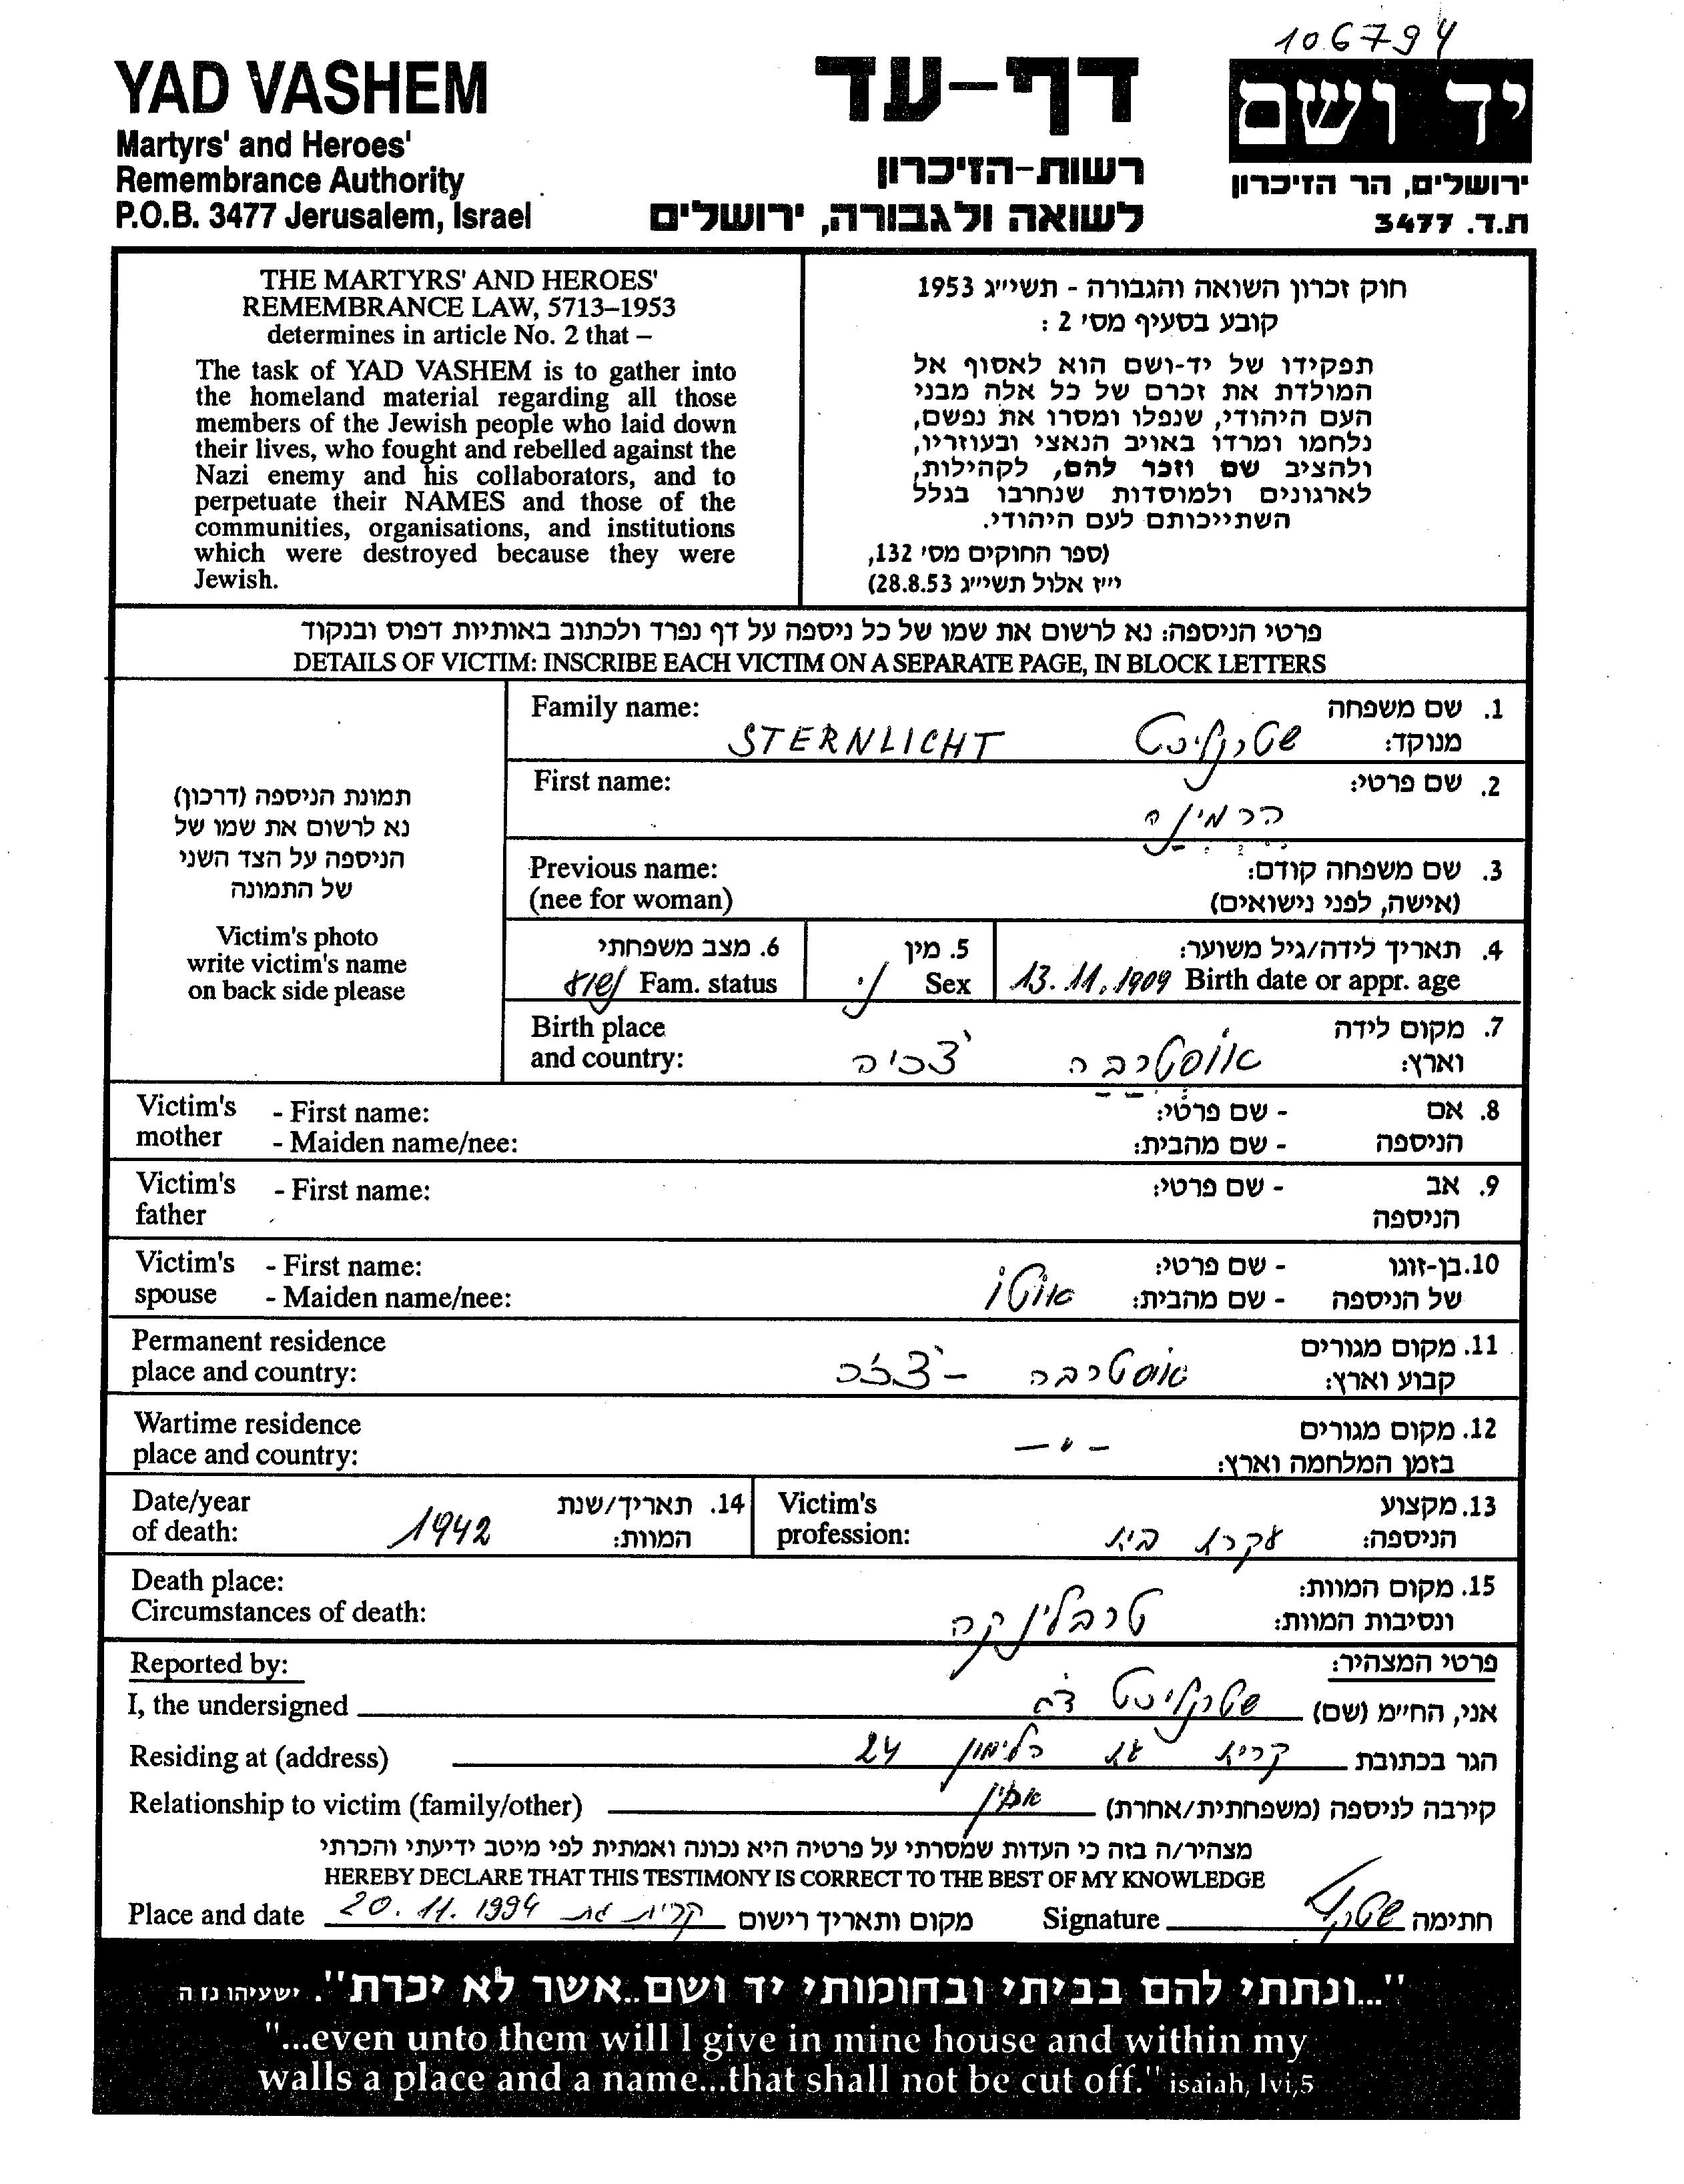 106794
YAD VASHEM
Martyrs' and Heroes'
Remembrance Authority
P.O.B. 3477 Jerusalem, Israel
דף-עד
רשות-הזיכרון
לשואה ולגבורה, ירושלים
יד ושם
ירושלים, הר הזיכרון
ת.ד. 3477
THE MARTYRS' AND HEROES'
REMEMBRANCE LAW, 5713–1953
determines in article No. 2 that –
The task of YAD VASHEM is to gather into
the homeland material regarding all those
members of the Jewish people who laid down
their lives, who fought and rebelled against the
Nazi enemy and his collaborators, and to
perpetuate their NAMES and those of the
communities, organisations, and institutions
which were destroyed because they were
Jewish.
חוק זכרון השואה והגבורה - תשי״ג 1953
קובע בסעיף מס׳ 2 :
תפקידו של יד-ושם הוא לאסוף אל
המולדת את זכרם של כל אלה מבני
העם היהודי, שנפלו ומסרו את נפשם,
נלחמו ומרדו באויב הנאצי ובעוזריו,
ולהציב שם וזכר להם, לקהילות,
לארגונים ולמוסדות שנחרבו בגלל
השתייכותם לעם היהודי.
(ספר החוקים מס׳ 132,
י״ז אלול תשי״ג 28.8.53)
פרטי הניספה: נא לרשום את שמו של כל ניספה על דף נפרד ולכתוב באותיות דפוס ובנקוד
DETAILS OF VICTIM: INSCRIBE EACH VICTIM ON A SEPARATE PAGE, IN BLOCK LETTERS
תמונת הניספה (דרכון)
נא לרשום את שמו של
הניספה על הצד השני
של התמונה
Victim's photo
write victim's name
on back side please
Family name: STERNLICHT שטרנליכט 1. שם משפחה
מנוקד:
First name: הרמינה 2. שם פרטי:
Previous name: 3. שם משפחה קודם:
(nee for woman) (אישה, לפני נישואים)
6. מצב משפחתי 5. מין 4. תאריך לידה/גיל משוער:
Fam. status Sex נ׳ 13.11.1909 Birth date or appr. age
Birth place 7. מקום לידה
and country: אוסטרבה צ׳כיה וארץ:
Victim's - First name: - שם פרטי: 8. אם
mother - Maiden name/nee: - שם מהבית: הניספה
Victim's - First name: - שם פרטי: 9. אב
father הניספה
Victim's - First name: - שם פרטי: 10. בן-זוגו
spouse - Maiden name/nee: אוטו - שם מהבית: של הניספה
Permanent residence 11. מקום מגורים
place and country: אוסטרבה - צ׳כ׳ קבוע וארץ:
Wartime residence 12. מקום מגורים
place and country: — " — בזמן המלחמה וארץ:
Date/year 14. תאריך/שנת Victim's 13. מקצוע
of death: 1942 המוות: profession: עקרת בית הניספה:
Death place: 15. מקום המוות:
Circumstances of death: טרבלינקה ונסיבות המוות:
Reported by: פרטי המצהיר:
I, the undersigned שטרנליכט אני, החי״מ (שם)
Residing at (address) קרית גת 24 הגר בכתובת
Relationship to victim (family/other) אחין קירבה לניספה (משפחתית/אחרת)
מצהיר/ה בזה כי העדות שמסרתי על פרטיה היא נכונה ואמתית לפי מיטב ידיעתי והכרתי
HEREBY DECLARE THAT THIS TESTIMONY IS CORRECT TO THE BEST OF MY KNOWLEDGE
Place and date 20.11.1994 קרית גת מקום ותאריך רישום Signature חתימה
"...ונתתי להם בביתי ובחומותי יד ושם..אשר לא יכרת". ישעיהו נז ה
"...even unto them will I give in mine house and within my
walls a place and a name...that shall not be cut off." isaiah, lvi,5